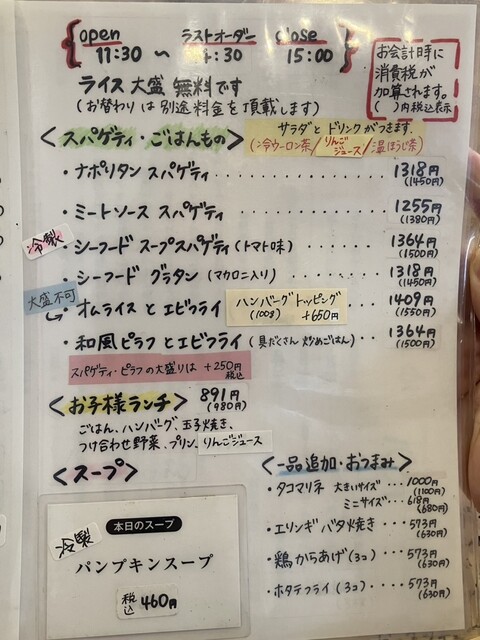 open ラストオーダー close
11:30 ～ 14:30 15:00
お会計時に
消費税が
加算されます。
( )内税込表示
ライス 大盛 無料です
(お替わりは別途料金を頂戴します)
<スパゲティ・ごはんもの>
サラダと ドリンクがつきます。
(冷ウーロン茶/りんごジュース/温ほうじ茶)
・ナポリタン スパゲティ 1318円
(1450円)
・ミートソース スパゲティ 1255円
(1380円)
冷製
・シーフード スープスパゲティ(トマト味) 1364円
(1500円)
・シーフード グラタン (マカロニ入り) 1318円
(1450円)
大盛不可
・オムライス と エビフライ 1409円
(1550円)
ハンバーグトッピング
(100g) +650円
・和風ピラフ とエビフライ (具だくさん 炒めごはん) 1364円
(1500円)
スパゲティ・ピラフの大盛りは +250円
税込
<お子様ランチ> 891円
(980円)
ごはん、ハンバーグ、玉子焼き、
つけ合わせ野菜、プリン、りんごジュース
<スープ>
冷製
本日のスープ
パンプキンスープ
税込 460円
<一品追加・おつまみ>
・タコマリネ 大きいサイズ 1000円
(1100円)
ミニサイズ 618円
(680円)
・エリンギ バタ焼き 573円
(630円)
・鶏からあげ(3コ) 573円
(630円)
・ホタテフライ(3コ) 573円
(630円)